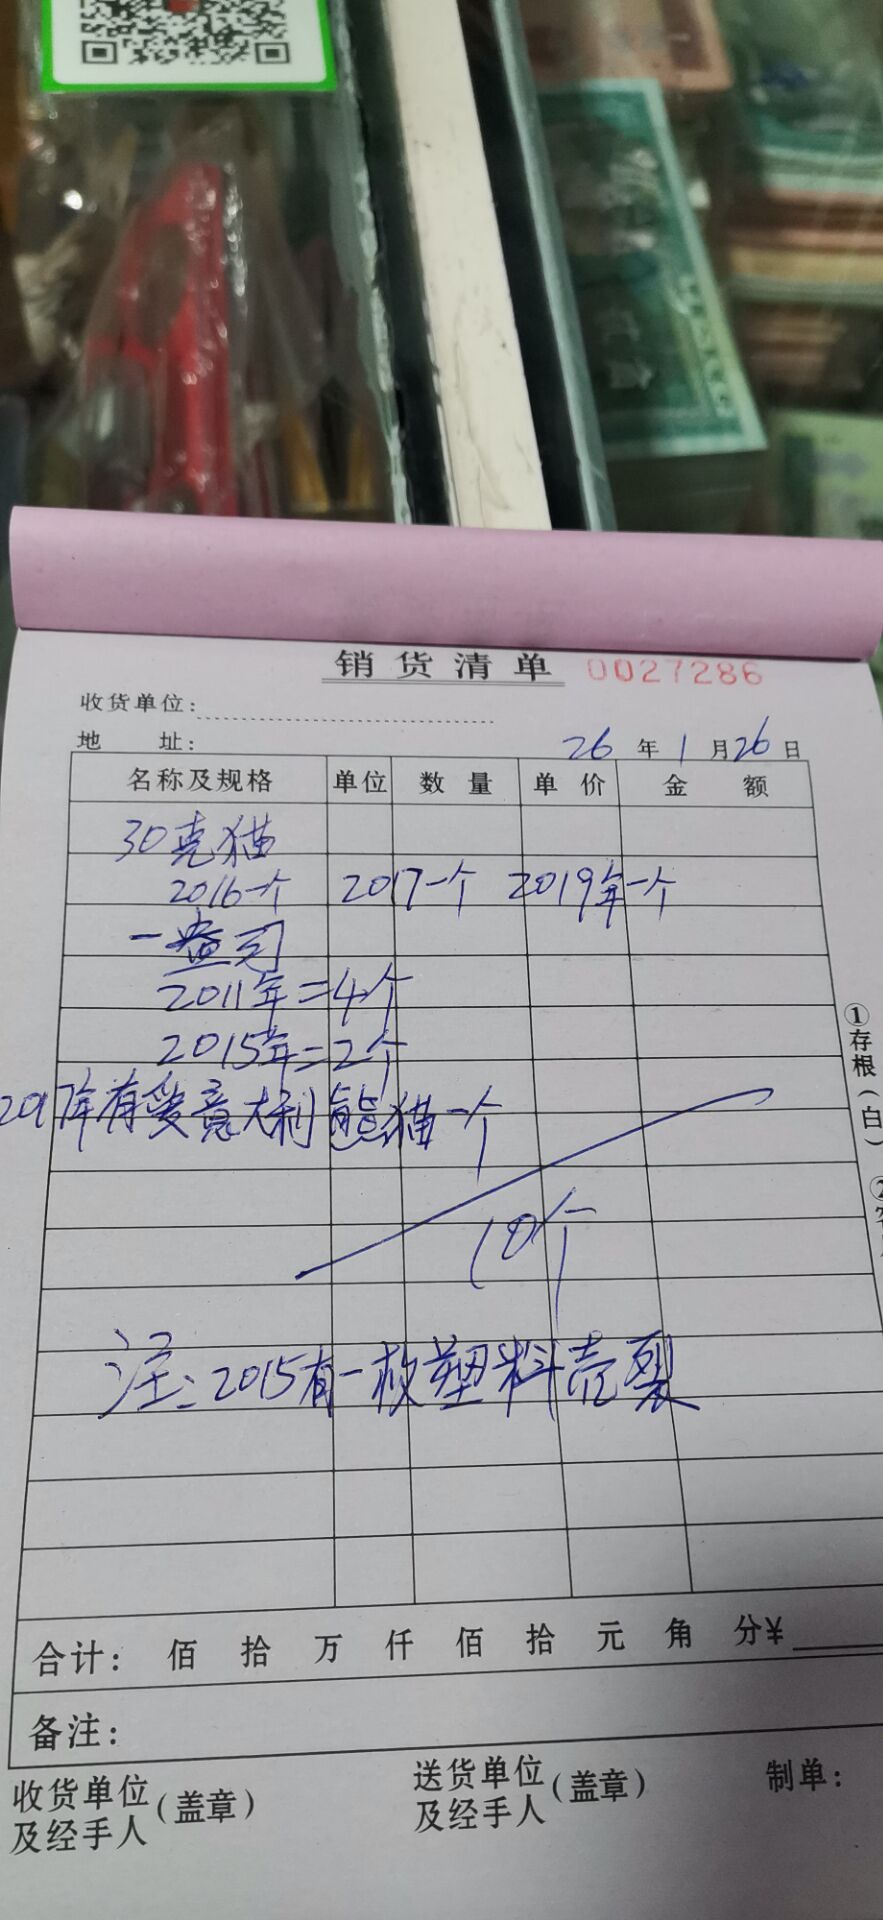 销货清单 0027286
收货单位:
地 址: 26 年 1 月 26 日
名称及规格 单位 数量 单价 金额
30克猫
2016一个 2017一个 2019年一个
一盎司
2011年=4个
2015年=2个
2017年有爱意大利熊猫一个
10个
注:2015有一枚塑料壳裂
①存根(白)
合计: 佰 拾 万 仟 佰 拾 元 角 分¥
备注:
收货单位及经手人(盖章) 送货单位及经手人(盖章) 制单: